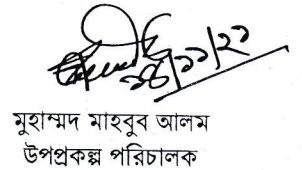 ২৪/১১/২১
মুহাম্মদ মাহবুব আলম
উপপ্রকল্প পরিচালক